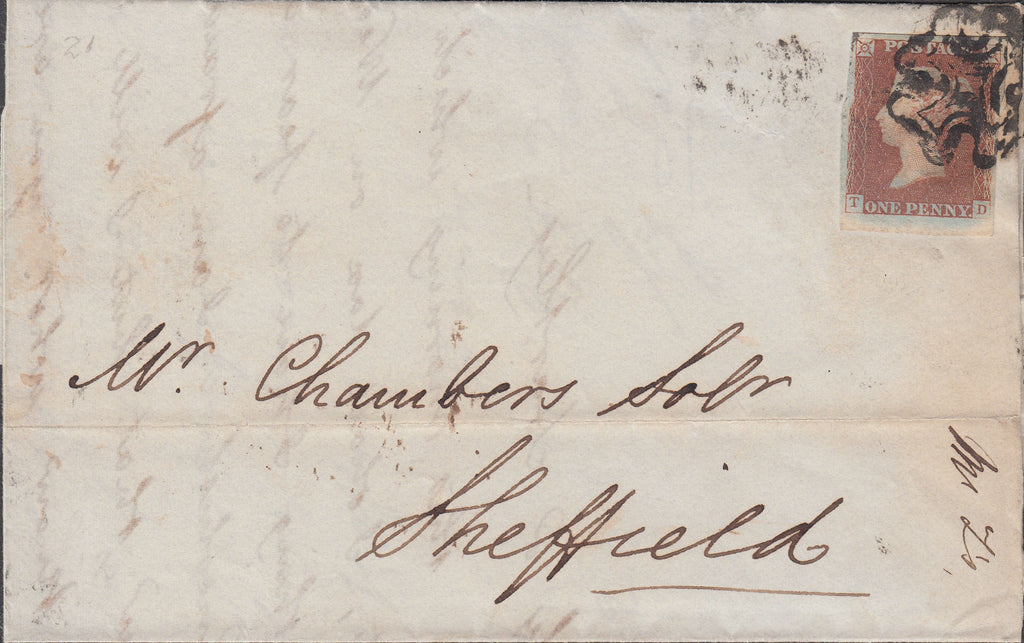 21
POSTAG
T ONE PENNY. D
Mr. Chambers Solr
Sheffield